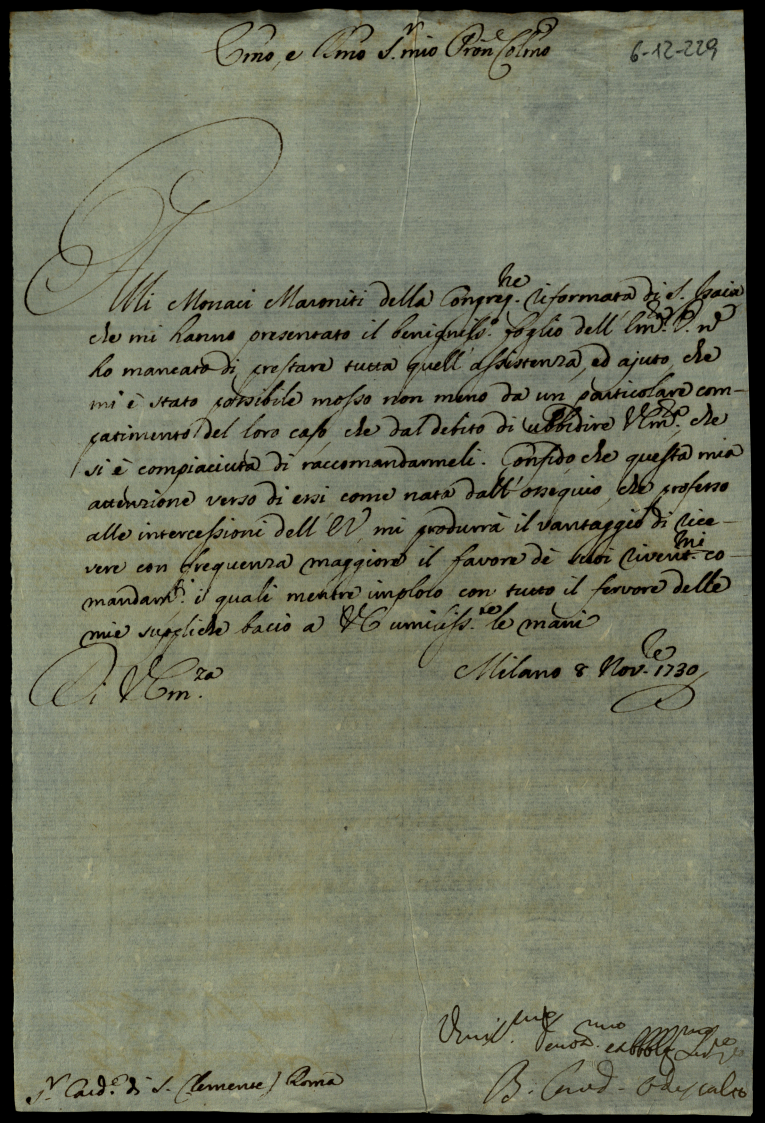 Emo, e Rmo Sr. mio Pron Colmo
6-12-229
Alli Monaci Maroniti della Congreg.ne riformata di S. Isaia
che mi hanno presentato il benigniss.o foglio dell' Em.a V. n
ho mancato di prestare tutta quell' assistenza, ed ajuto, che
mi è stato possibile mosso non meno da un particolare com-
patimento del loro caso, che dal debito di ubbidire VEm.a, che
si è compiaciuta di raccomandarmeli. Confido, che questa mia
attenzione verso di essi come nata dall' ossequio, che professo
alle intercessioni dell' EV, mi produrrà il vantaggio di rice-
vere con frequenza maggiore il favore de suoi riverit.mi co-
mandam.ti i quali mentre imploro con tutto il fervore delle
mie suppliche bacio a VE umiliss.te le mani
Di VEm.za
Milano 8 Nov.le 1730
Umil.mo Devot.mo ed Obbl.mo
B. Card. Odescalco
Sr. Card.e di S. Clemente / Roma